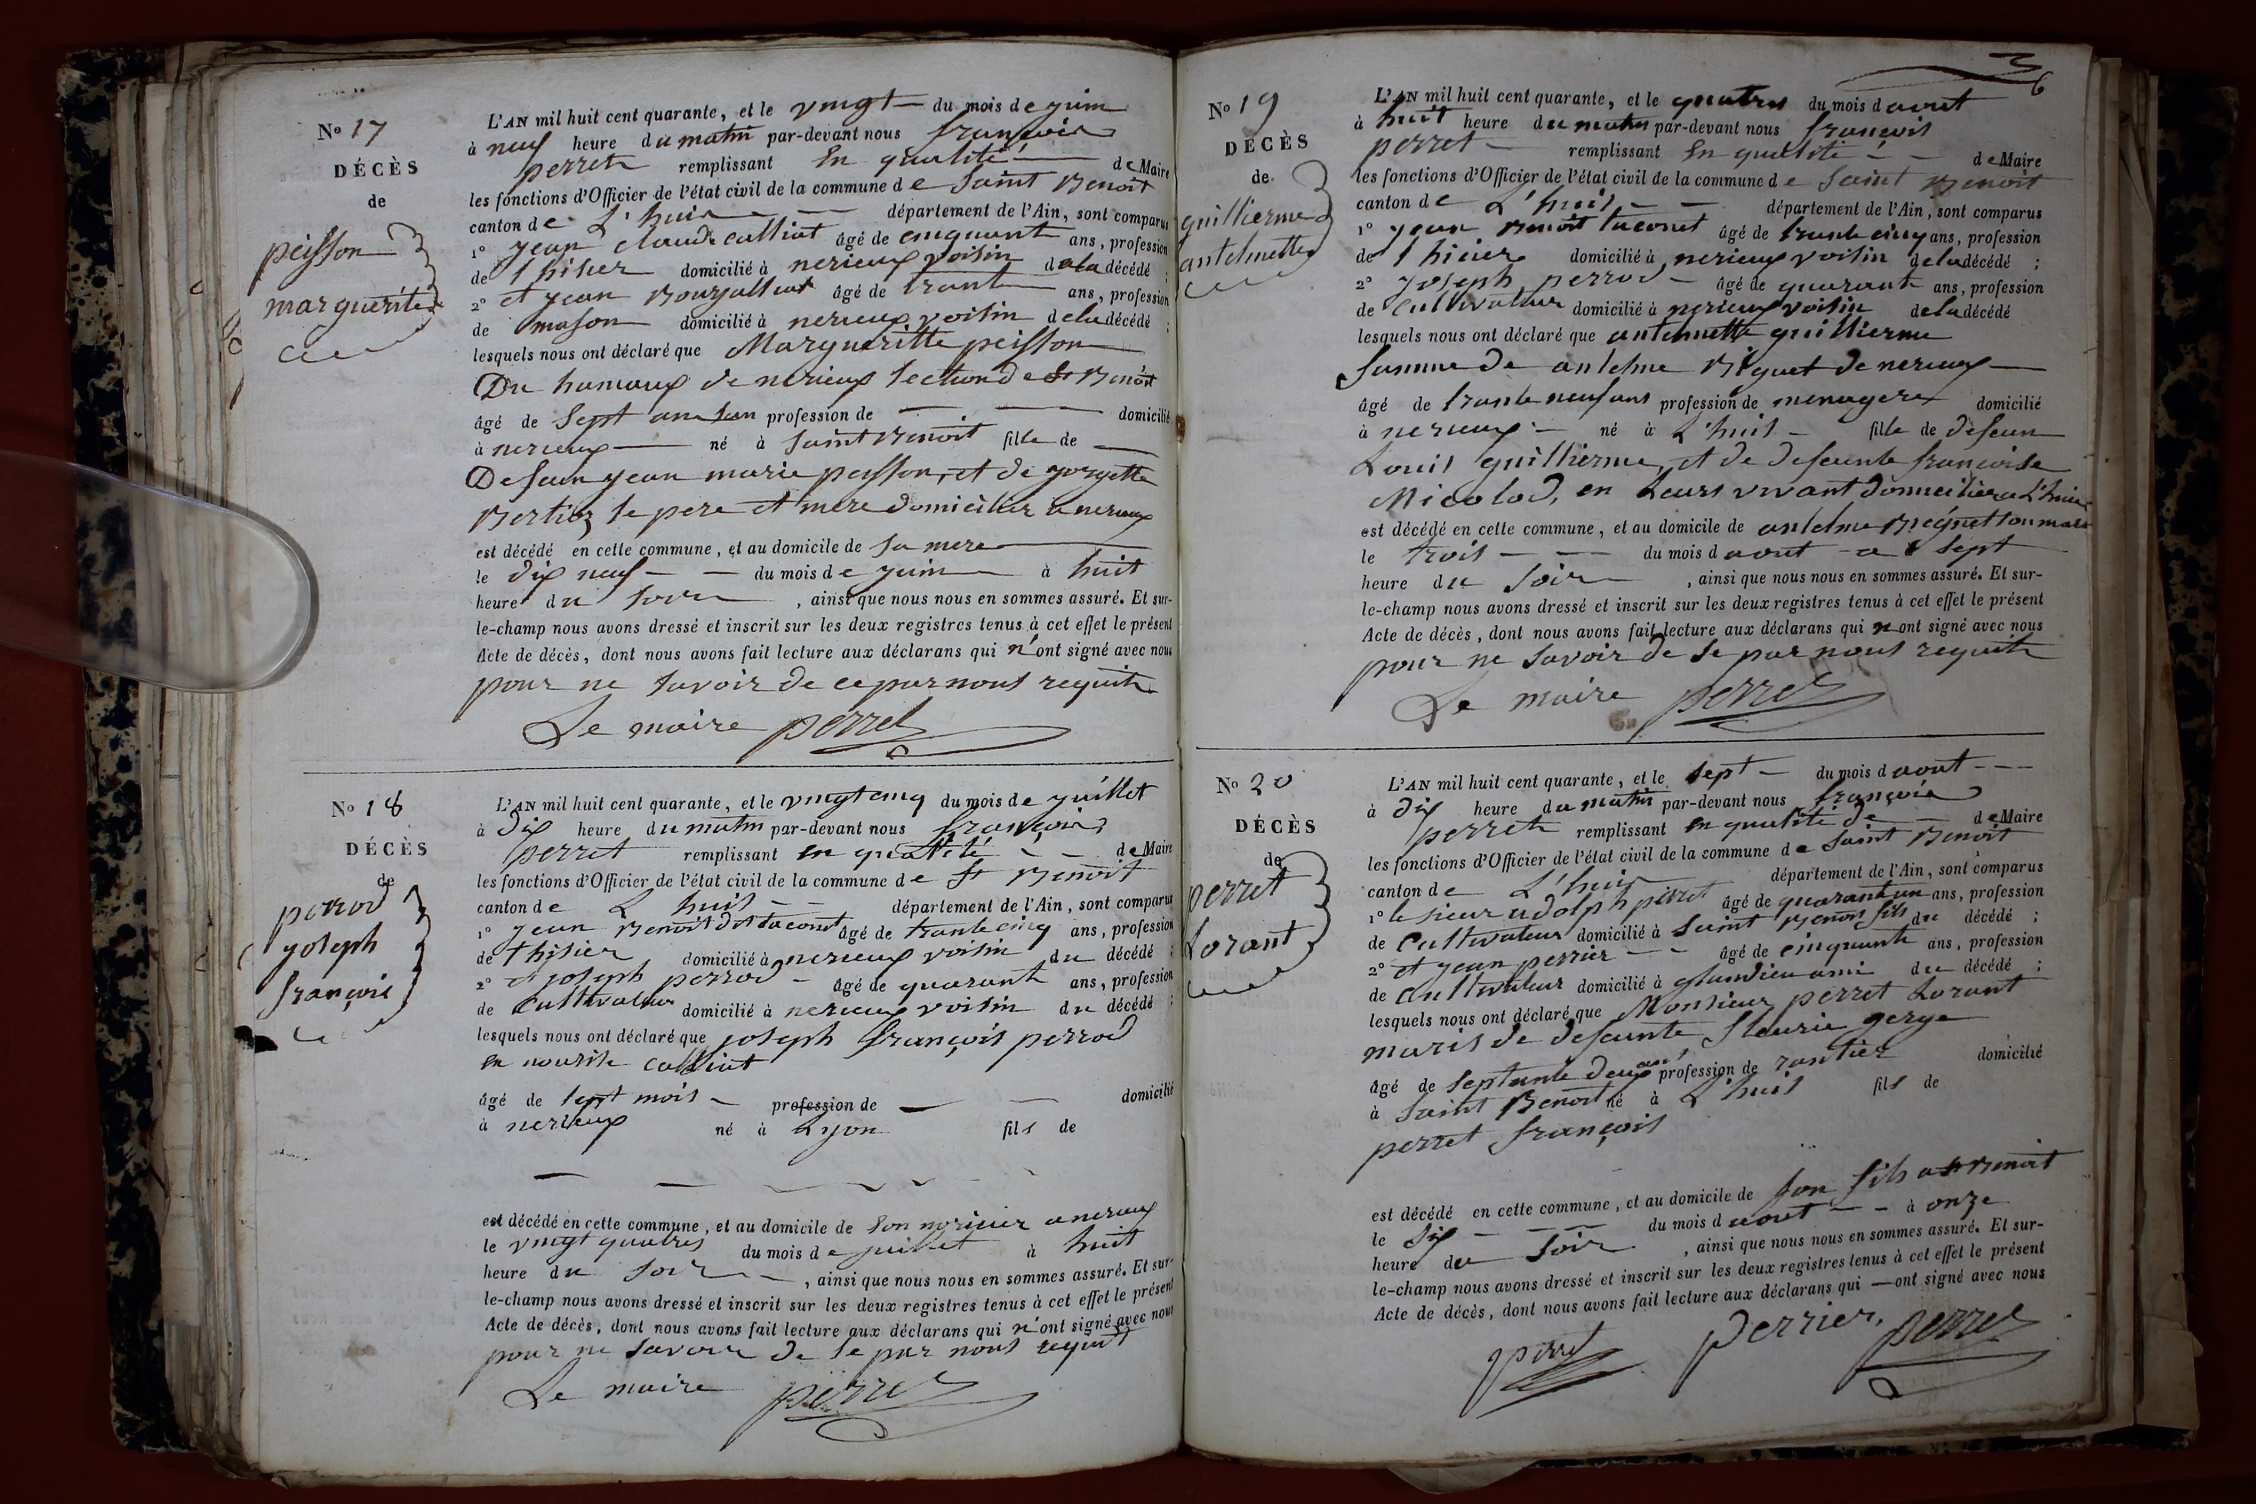 No 17
DÉCÈS
de
peisson
marguerite
L'AN mil huit cent quarante, et le vingt du mois de juin
à neuf heure du matin par-devant nous françois
perret remplissant en qualité de Maire
les fonctions d'Officier de l'état civil de la commune de Saint Benoit
canton de L'huis département de l'Ain, sont comparus
1° jean claude calliat âgé de cinquante ans, profession
de thisier domicilié à nerieux voisin de la décédé ;
2° et jean Bourjalliat âgé de trante ans, profession
de mason domicilié à nerieux voisin de la décédé ;
lesquels nous ont déclaré que Margueritte peisson
Du hamaux de nerieux section de St Benoit
âgé de sept ans profession de domicilié
à nerieux né à Saint Benoit fille de
Defeun jean marie peisson, et de jorgette
Bertier se pere et mere domicilier a nerieux
est décédé en cette commune, et au domicile de sa mere
le dix neuf du mois de juin à huit
heure du soir, ainsi que nous nous en sommes assuré. Et sur-
le-champ nous avons dressé et inscrit sur les deux registres tenus à cet effet le présent
Acte de décès, dont nous avons fait lecture aux déclarans qui n'ont signé avec nous
pour ne savoir de ce par nous requit
Le maire perret
No 18
DÉCÈS
de
perrod
joseph
françois
L'AN mil huit cent quarante, et le vingt cinq du mois de juillet
à dix heure du matin par-devant nous françois
perret remplissant en qualité de Maire
les fonctions d'Officier de l'état civil de la commune de St Benoit
canton de L'huis département de l'Ain, sont comparus
1° jean Benoit dit taconet âgé de trante cinq ans, profession
de thisier domicilié à nerieux voisin du décédé ;
2° et joseph perrod âgé de quarant ans, profession
de cultivateur domicilié à nerieux voisin du décédé ;
lesquels nous ont déclaré que joseph françois perrod
en nourise calliat
âgé de sept mois profession de domicilié
à nerieux né à Lyon fils de
est décédé en cette commune, et au domicile de son noricier a nerieux
le vingt quatres du mois de juillet à huit
heure du soir, ainsi que nous nous en sommes assuré. Et sur-
le-champ nous avons dressé et inscrit sur les deux registres tenus à cet effet le présent
Acte de décès, dont nous avons fait lecture aux déclarans qui n'ont signé avec nous
pour ne savoir de se par nous requit
Le maire perret
6
No 19
DÉCÈS
de
guillierme
antelmette
L'AN mil huit cent quarante, et le quatres du mois d aout
à huit heure du matin par-devant nous françois
perret remplissant en qualité de Maire
les fonctions d'Officier de l'état civil de la commune de Saint Benoit
canton de L'huis département de l'Ain, sont comparus
1° jean Benoit taconet âgé de trante cinq ans, profession
de thicier domicilié à nerieux voisin de la décédé ;
2° joseph perrod âgé de quarant ans, profession
de cultivateur domicilié à nerieux voisin de la décédé
lesquels nous ont déclaré que antelmette guillierme
famme de antelme Biguet de nerieux
âgé de trante neuf ans profession de menagere domicilié
à nerieux né à L'huis fille de defeun
Louis guillierme, et de defeunte françoise
Micolod, en leurs vivant domicilier a L'huis
est décédé en cette commune, et au domicile de antelme Biguet son mari
le trois du mois d aout a sept
heure du soir, ainsi que nous nous en sommes assuré. Et sur-
le-champ nous avons dressé et inscrit sur les deux registres tenus à cet effet le présent
Acte de décès, dont nous avons fait lecture aux déclarans qui n ont signé avec nous
pour ne savoir de se par nous requit
Le maire perret
No 20
DÉCÈS
de
perret
Lorant
L'AN mil huit cent quarante, et le sept du mois d aout
à dix heure du matin par-devant nous françois
perret remplissant en qualité de de Maire
les fonctions d'Officier de l'état civil de la commune de Saint Benoit
canton de L'huis département de l'Ain, sont comparus
1° le sieur adolph perret âgé de quarant un ans, profession
de Cultivateur domicilié à Saint Benoit fils du décédé ;
2° et jean perrier âgé de cinquante ans, profession
de Cultivateur domicilié à glandieu ami du décédé ;
lesquels nous ont déclaré que Monsieur perret Lorant
maris de defeunte fleurie gerge
âgé de septante deux ans profession de rantier domicilié
à Saint Benoit né à L'huis fils de
perret françois
est décédé en cette commune, et au domicile de son fils a St Benoit
le six du mois d aout à onze
heure du soir, ainsi que nous nous en sommes assuré. Et sur-
le-champ nous avons dressé et inscrit sur les deux registres tenus à cet effet le présent
Acte de décès, dont nous avons fait lecture aux déclarans qui ont signé avec nous
perret perrier, perret